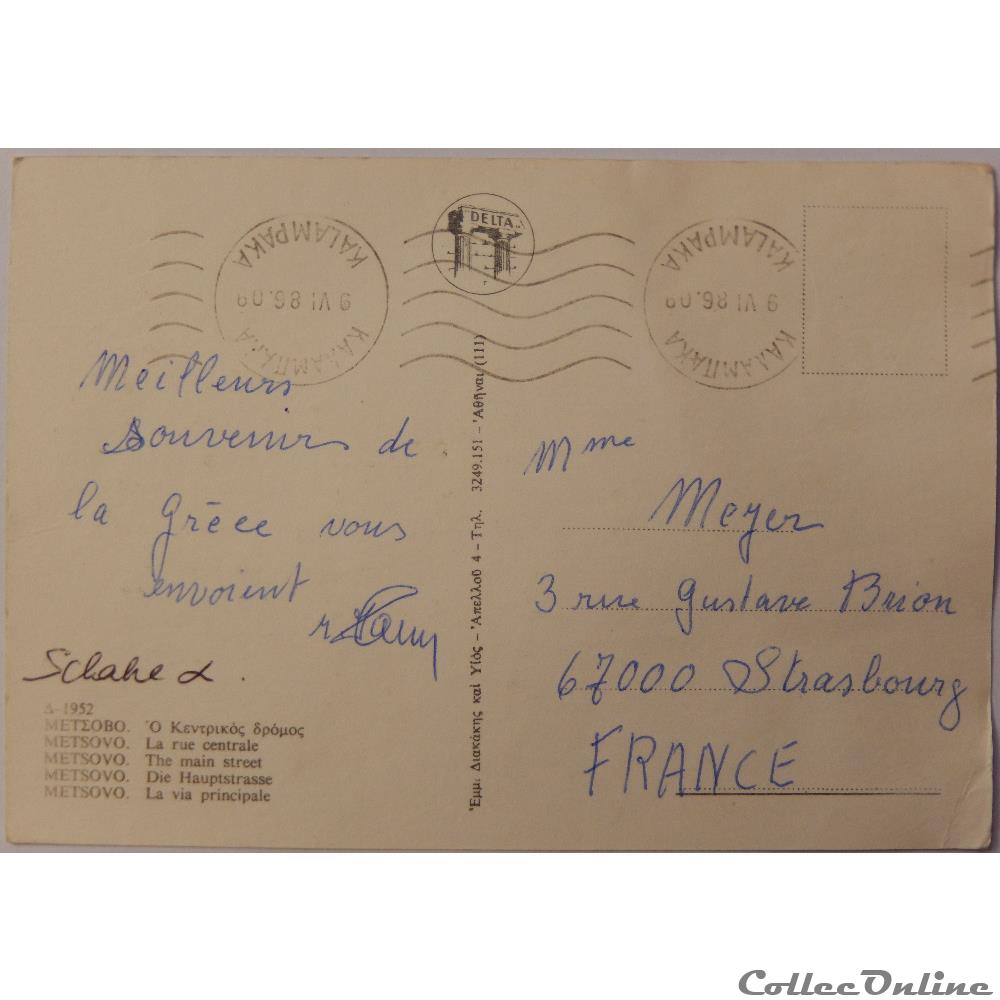 DELTA
KALAMPAKA
9 VI 86.09
ΚΑΛΑΜΠΑΚΑ
KALAMPAKA
9 VI 86.09
ΚΑΛΑΜΠΑΚΑ
Meilleurs
souvenirs de
la Grèce vous
envoient
Δ-1952
ΜΕΤΣΟΒΟ. Ὁ Κεντρικός δρόμος
METSOVO. La rue centrale
METSOVO. The main street
METSOVO. Die Hauptstrasse
METSOVO. La via principale
Ἐμμ. Διακάκης καί Υἱός – Ἀπελλοῦ 4 – Τηλ. 3249.151 – Ἀθῆναι (111)
Mme
Meyer
3 rue Gustave Brion
67000 Strasbourg
FRANCE
CollecOnline